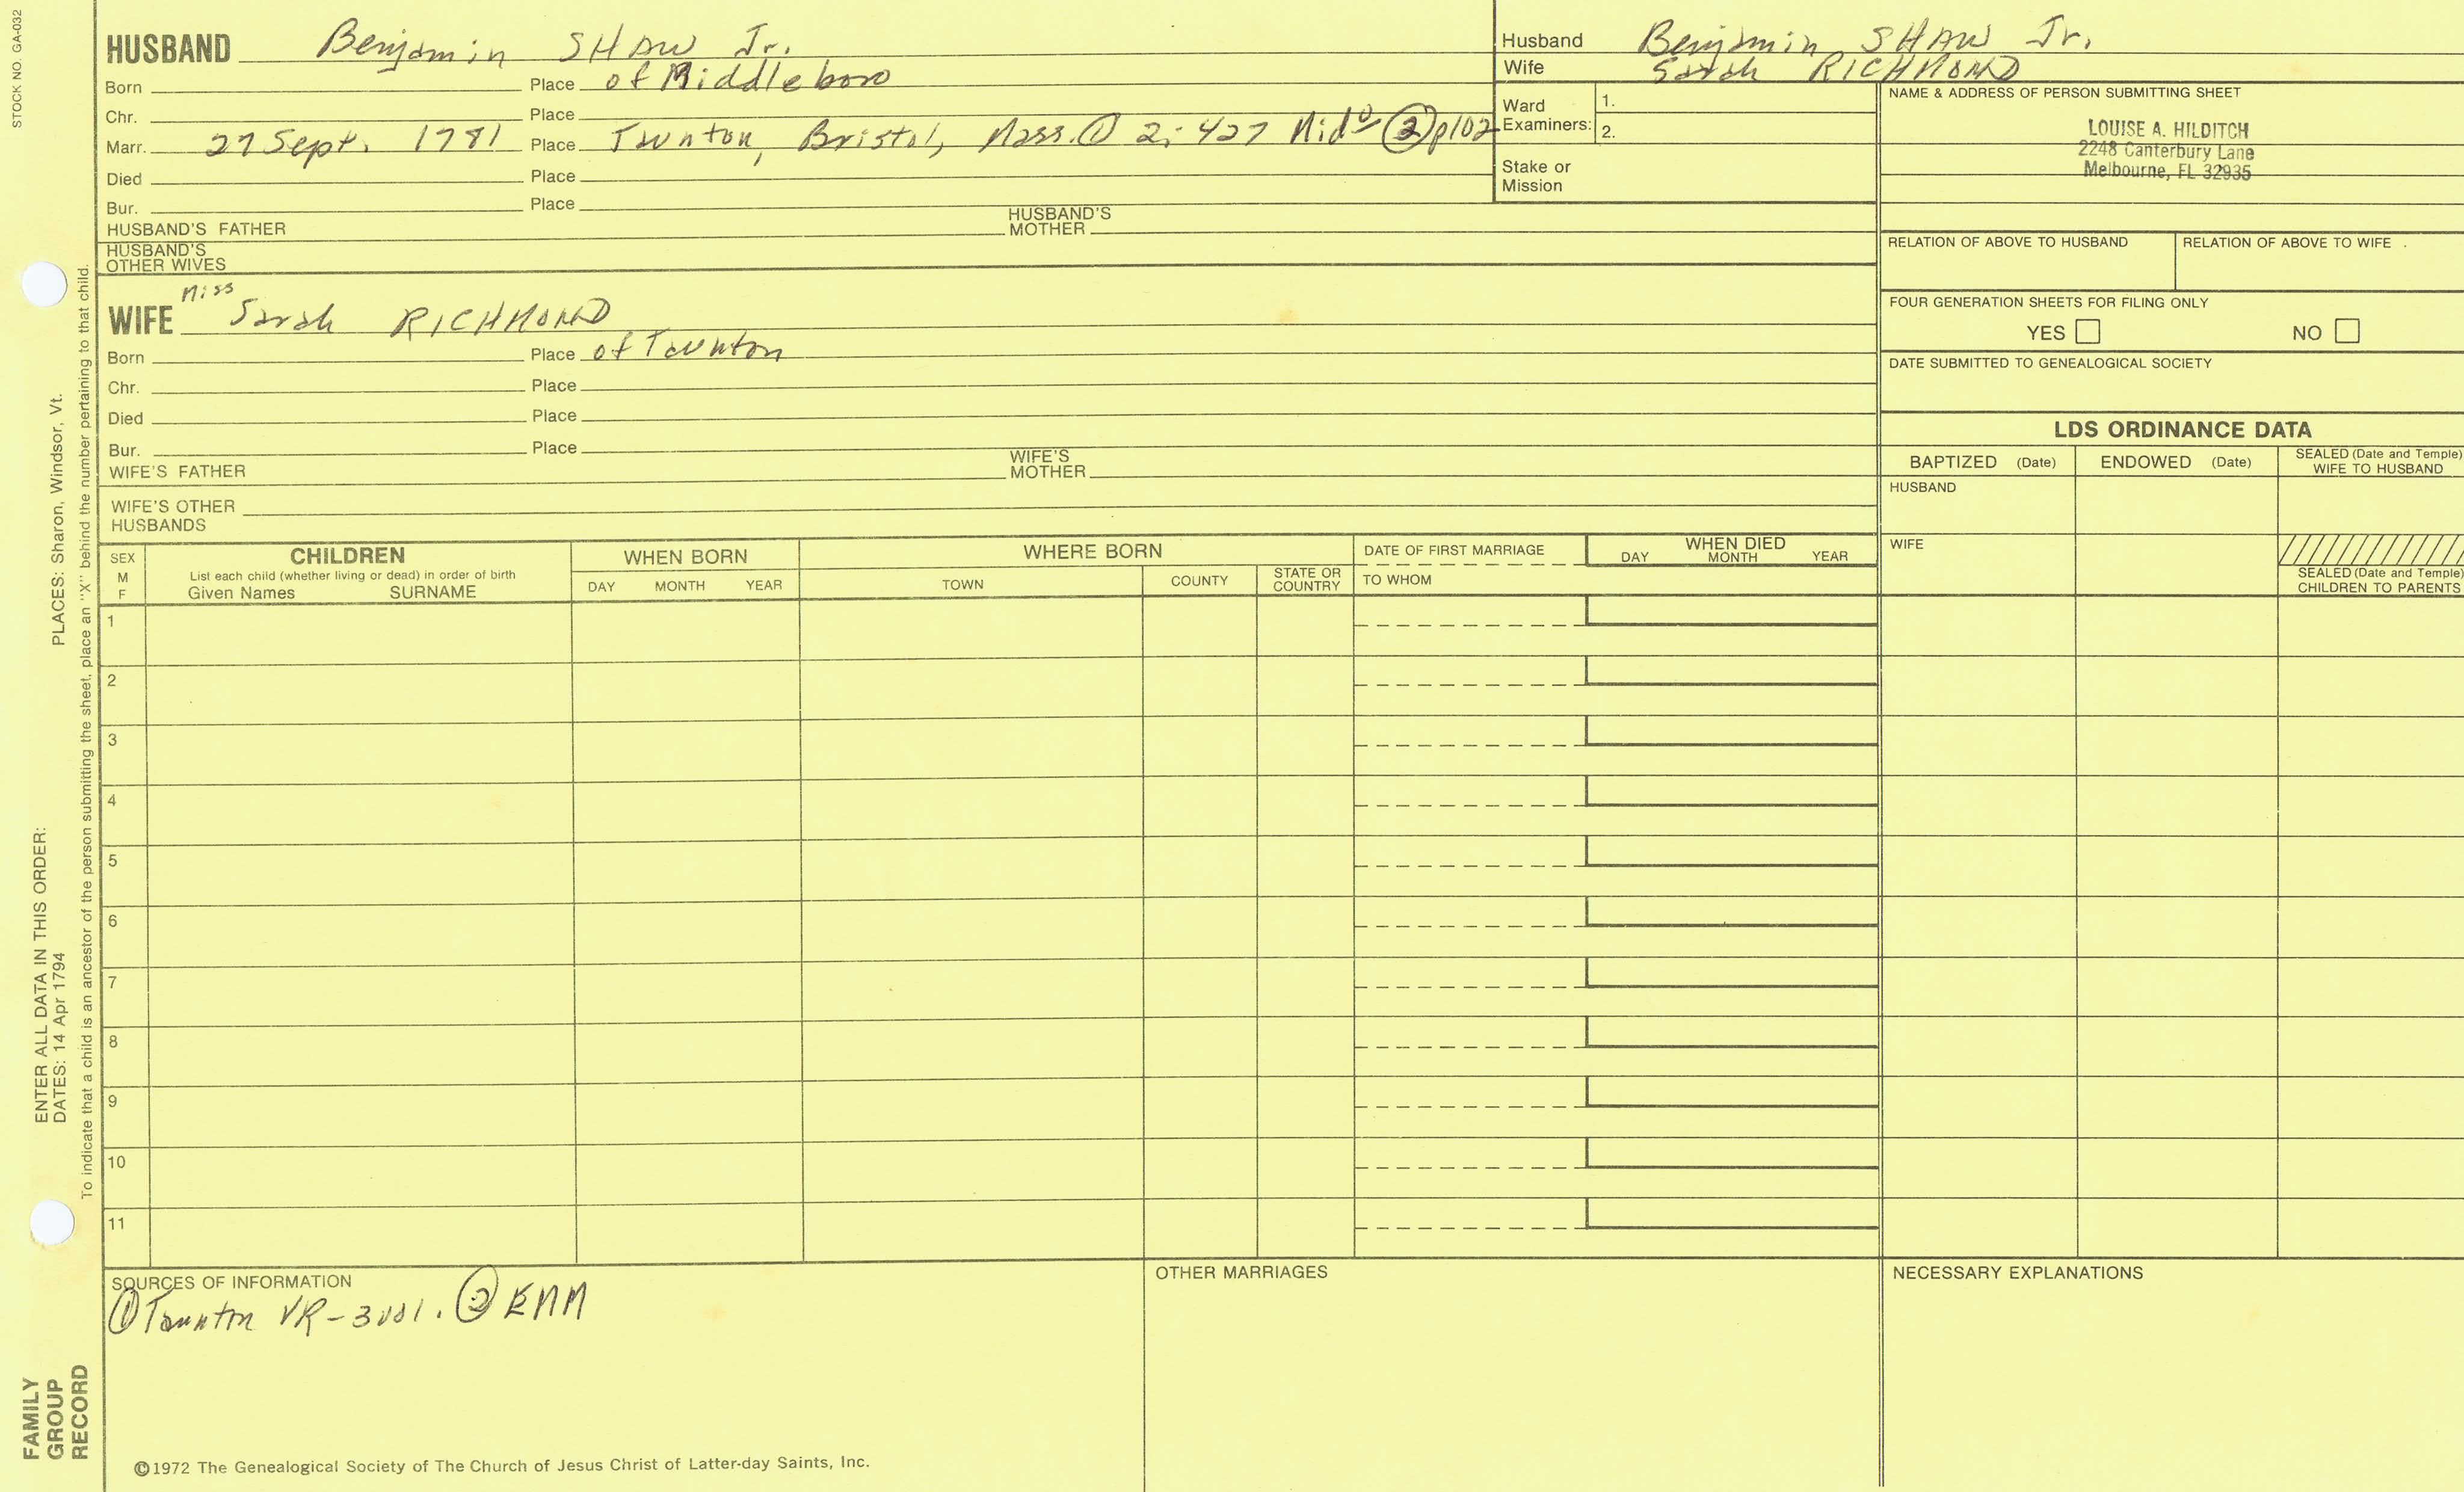 STOCK NO. GA-032
HUSBAND Benjamin SHAW Jr.
Born Place of Middleboro
Chr. Place
Marr. 27 Sept. 1781 Place Taunton, Bristol, Mass. ① 2: 427 Midº ② p102
Died Place
Bur. Place
HUSBAND'S FATHER HUSBAND'S MOTHER
HUSBAND'S OTHER WIVES
Husband Benjamin SHAW Jr.
Wife Sarah RICHMOND
Ward Examiners: 1.
2.
Stake or Mission
NAME & ADDRESS OF PERSON SUBMITTING SHEET
LOUISE A. HILDITCH
2248 Canterbury Lane
Melbourne, FL 32935
RELATION OF ABOVE TO HUSBAND RELATION OF ABOVE TO WIFE
FOUR GENERATION SHEETS FOR FILING ONLY
YES NO
DATE SUBMITTED TO GENEALOGICAL SOCIETY
Miss
WIFE Sarah RICHMOND
Born Place of Taunton
Chr. Place
Died Place
Bur. Place
WIFE'S FATHER WIFE'S MOTHER
WIFE'S OTHER HUSBANDS
LDS ORDINANCE DATA
BAPTIZED (Date) ENDOWED (Date) SEALED (Date and Temple) WIFE TO HUSBAND
HUSBAND
WIFE
SEALED (Date and Temple) CHILDREN TO PARENTS
SEX M F
CHILDREN
List each child (whether living or dead) in order of birth
Given Names SURNAME
WHEN BORN
DAY MONTH YEAR
WHERE BORN
TOWN COUNTY STATE OR COUNTRY
DATE OF FIRST MARRIAGE
TO WHOM
WHEN DIED
DAY MONTH YEAR
1
2
3
4
5
6
7
8
9
10
11
SOURCES OF INFORMATION
① Taunton VR-3vol. ② EMM
OTHER MARRIAGES
NECESSARY EXPLANATIONS
©1972 The Genealogical Society of The Church of Jesus Christ of Latter-day Saints, Inc.
FAMILY
GROUP
RECORD
ENTER ALL DATA IN THIS ORDER:
DATES: 14 Apr 1794 PLACES: Sharon, Windsor, Vt.
To indicate that a child is an ancestor of the person submitting the sheet, place an "X" behind the number pertaining to that child.